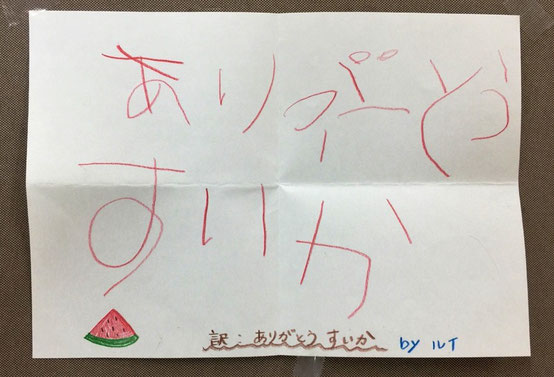 ありがとう
すいか
訳：ありがとう すいか by ルイ